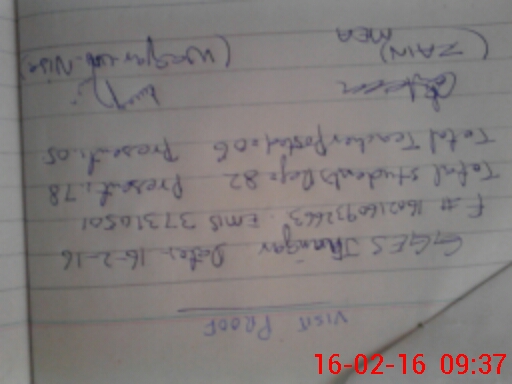 VISIT PROOF
GGES Jhangar Date:- 16-2-16
F # 16021609732663. EMIS 37310501
Total Students Reg:= 82 Present:78
Total Teacher Posted:=06 Present:05
(ZAIN)
MEA
16-02-16 09:37